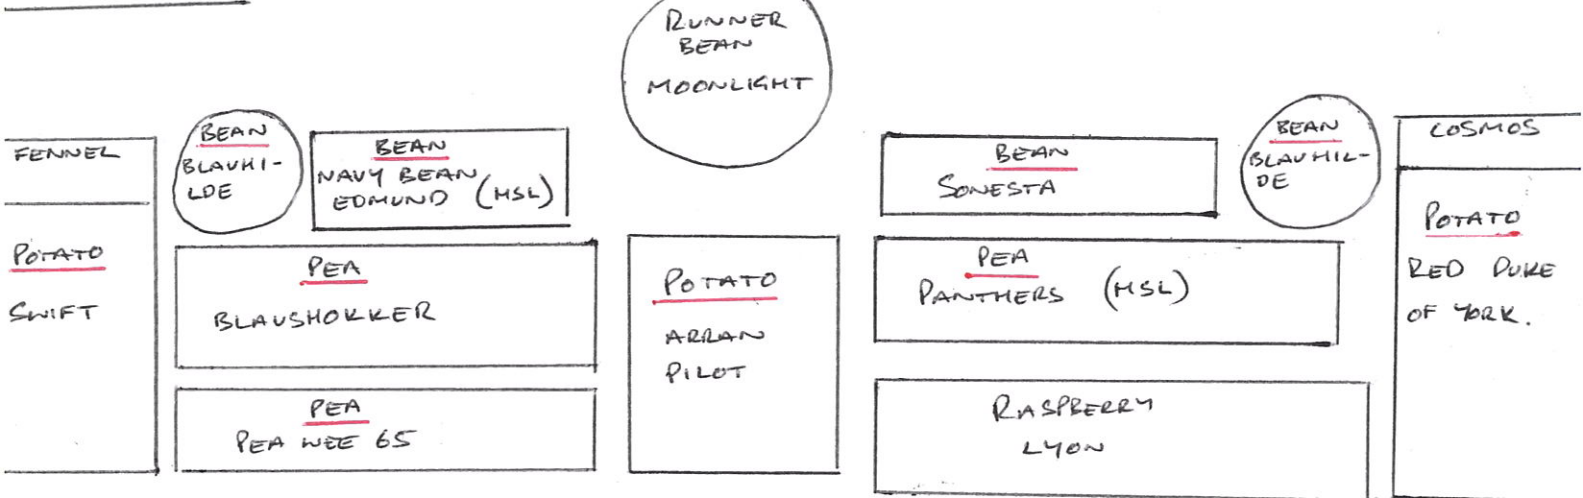 RUNNER
BEAN
MOONLIGHT
FENNEL
POTATO
SWIFT
BEAN
BLAUHI-
LDE
BEAN
NAVY BEAN
EDMUND (HSL)
PEA
BLAUSHOKKER
PEA
PEA WEE 65
POTATO
ARRAN
PILOT
BEAN
SONESTA
PEA
PANTHERS (HSL)
RASPBERRY
LYON
BEAN
BLAUHIL-
DE
COSMOS
POTATO
RED DUKE
OF YORK.